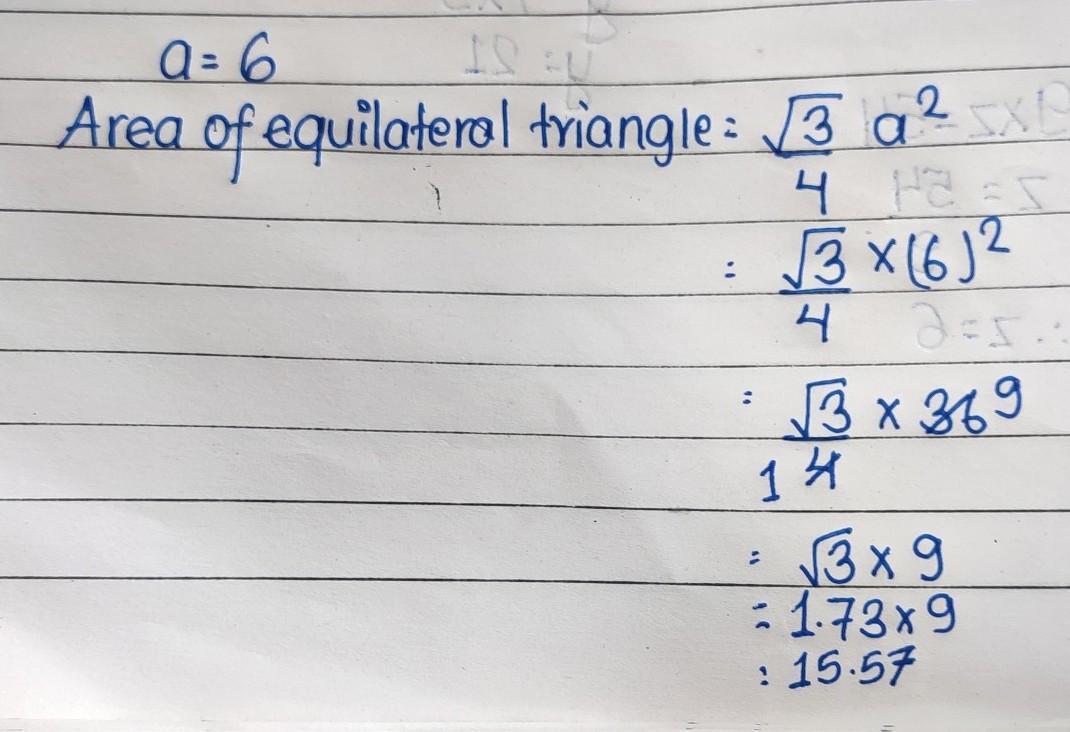 a = 6
Area of equilateral triangle = √3/4 a²
= √3/4 × (6)²
= √3/4 1 × 36 9
= √3 × 9
= 1.73 × 9
: 15.57